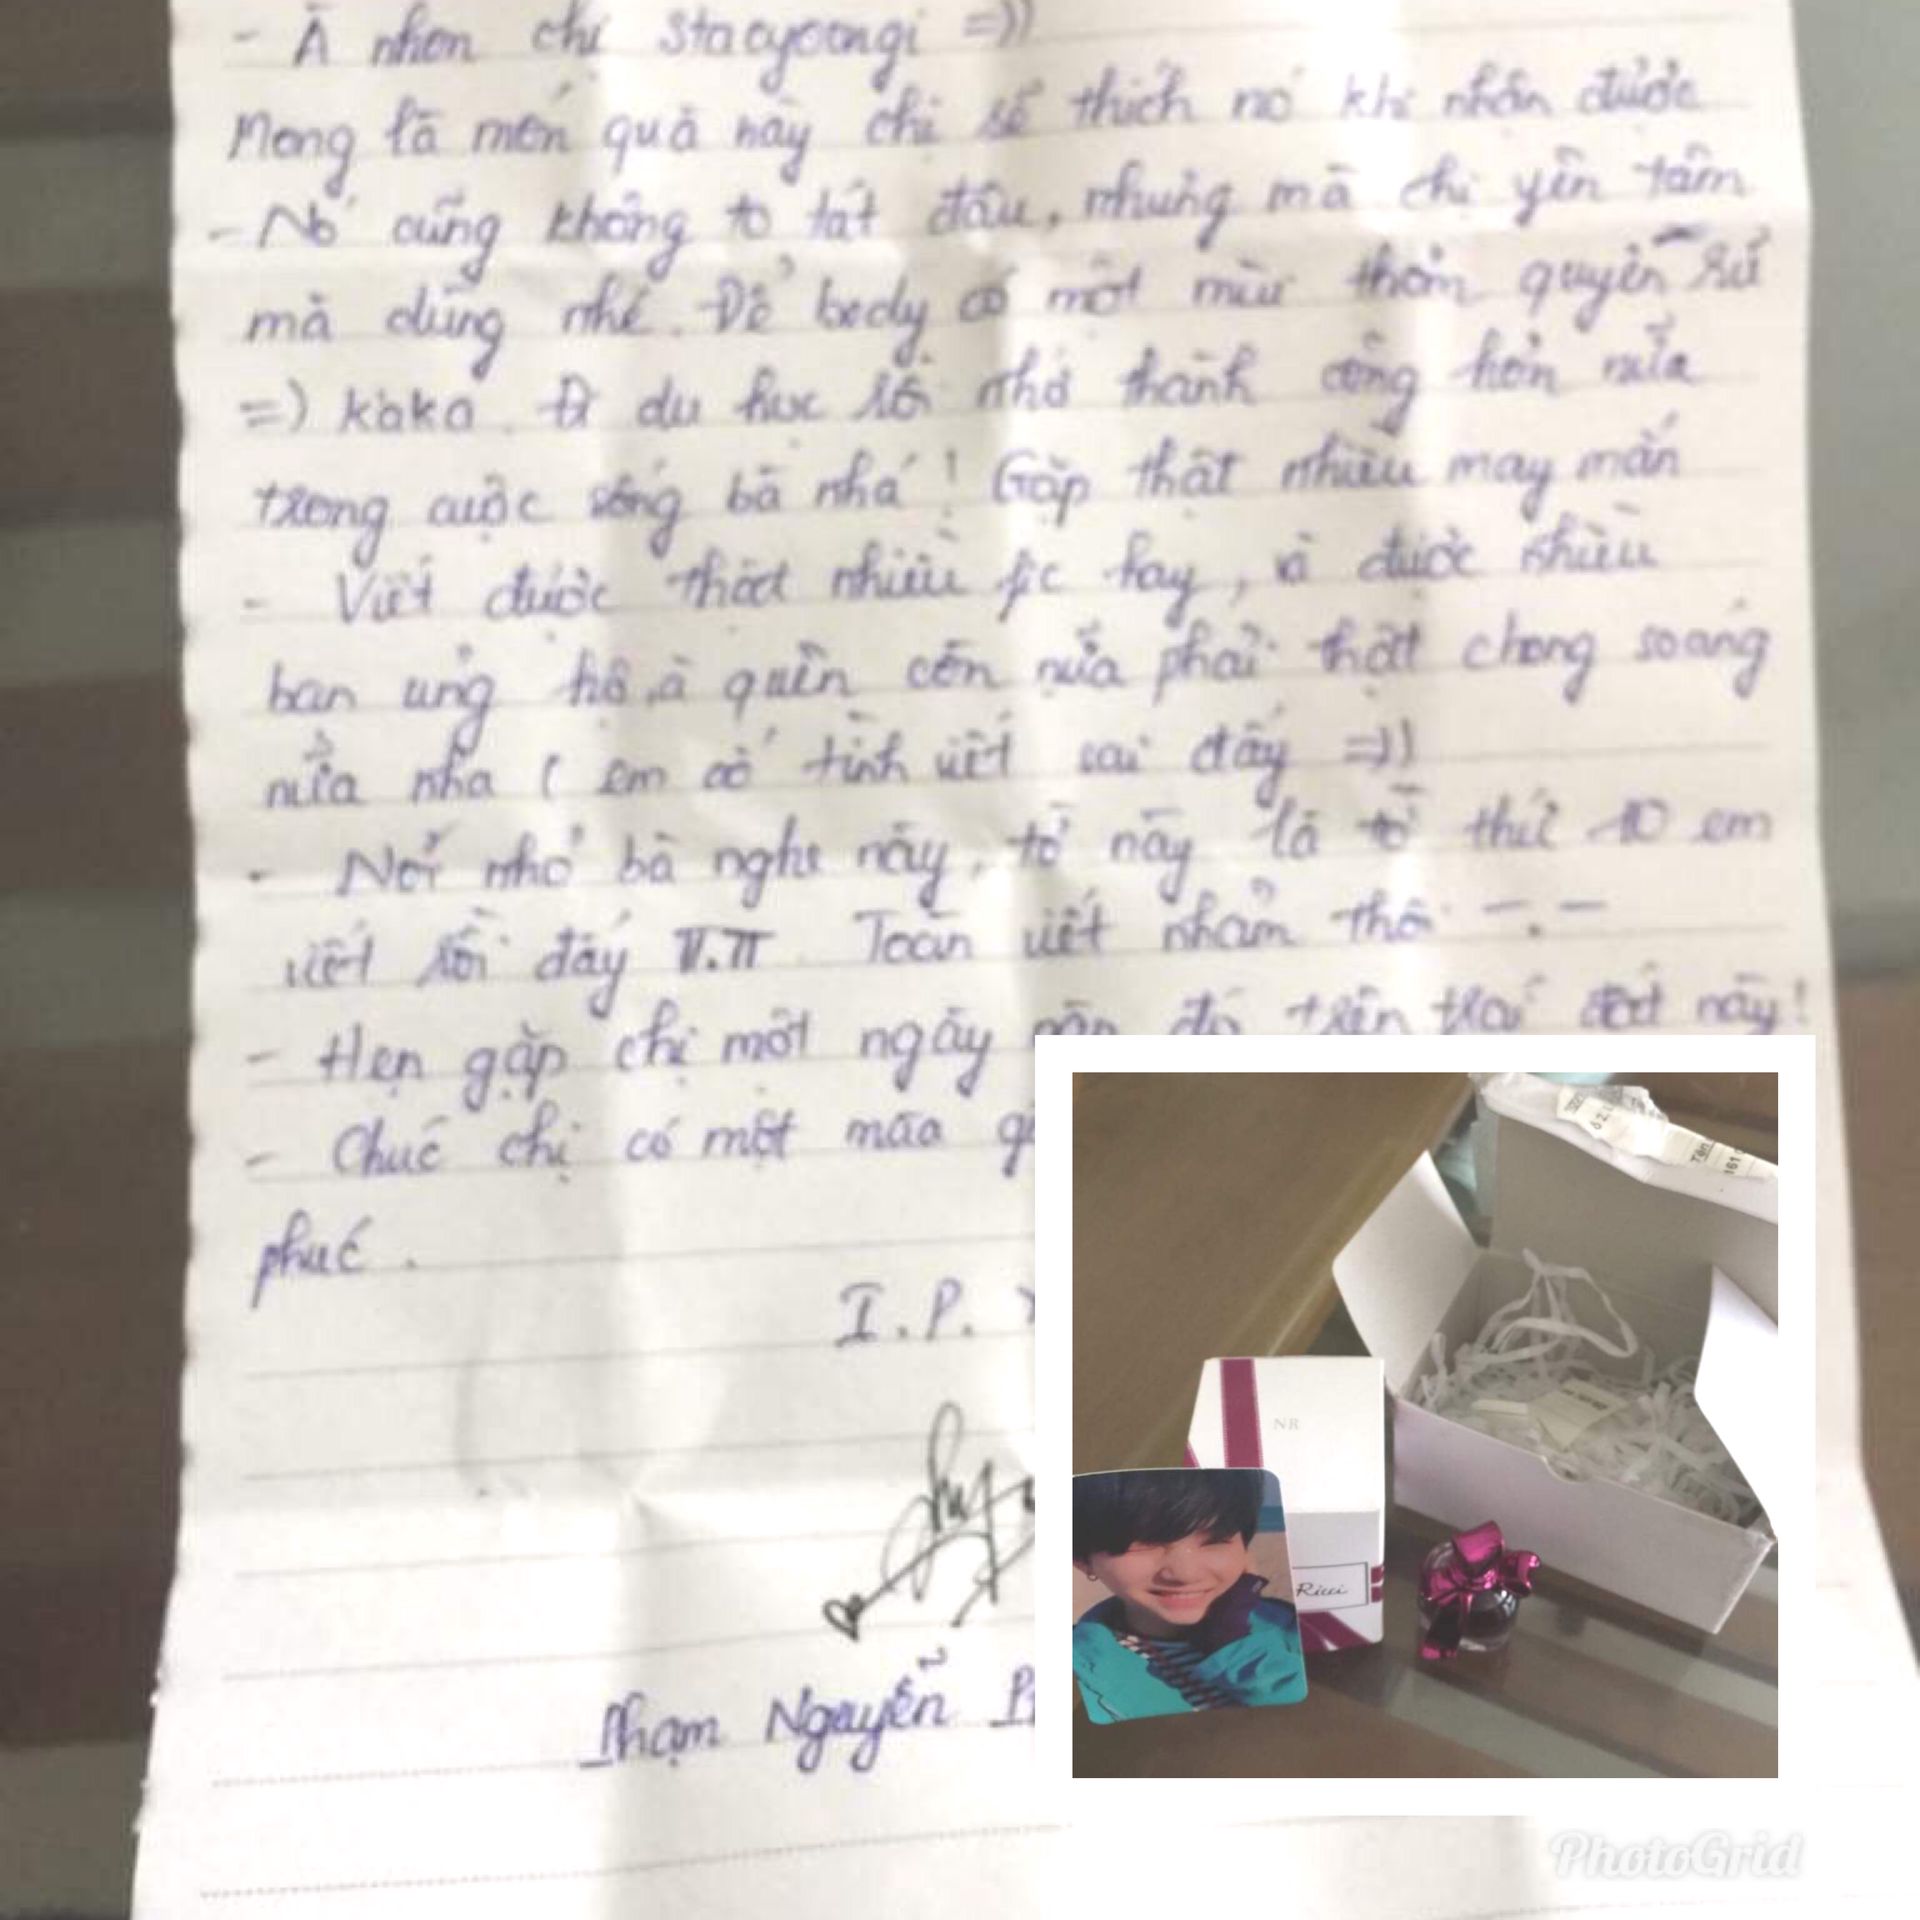 - À nhon chị Stacyoongi =))
Mong là món quà này chị sẽ thích nó khi nhận được
- Nó cũng không to tát đâu, nhưng mà chị yên tâm
mà dùng nhé. Để body có một mùi thơm quyến rũ
=) kaka. Đi du học rồi nhớ thành công hơn nữa
trong cuộc sống bà nhá! Gặp thật nhiều may mắn
- Viết được thật nhiều fic hay, và được nhiều
bạn ủng hộ, à quên còn nữa phải thật chong soáng
nữa nha ( em cố tình viết sai đấy =))
- Nói nhỏ bà nghe này, tờ này là tờ thứ 10 em
viết rồi đấy T.T. Toàn viết nhầm thôi -.-
- Hẹn gặp chị một ngày nào đó trên trái đất này!
- Chúc chị có một mùa
phúc.
I.P.
Phạm Nguyễn
NR
Ricci
Tên
1610
PhotoGrid